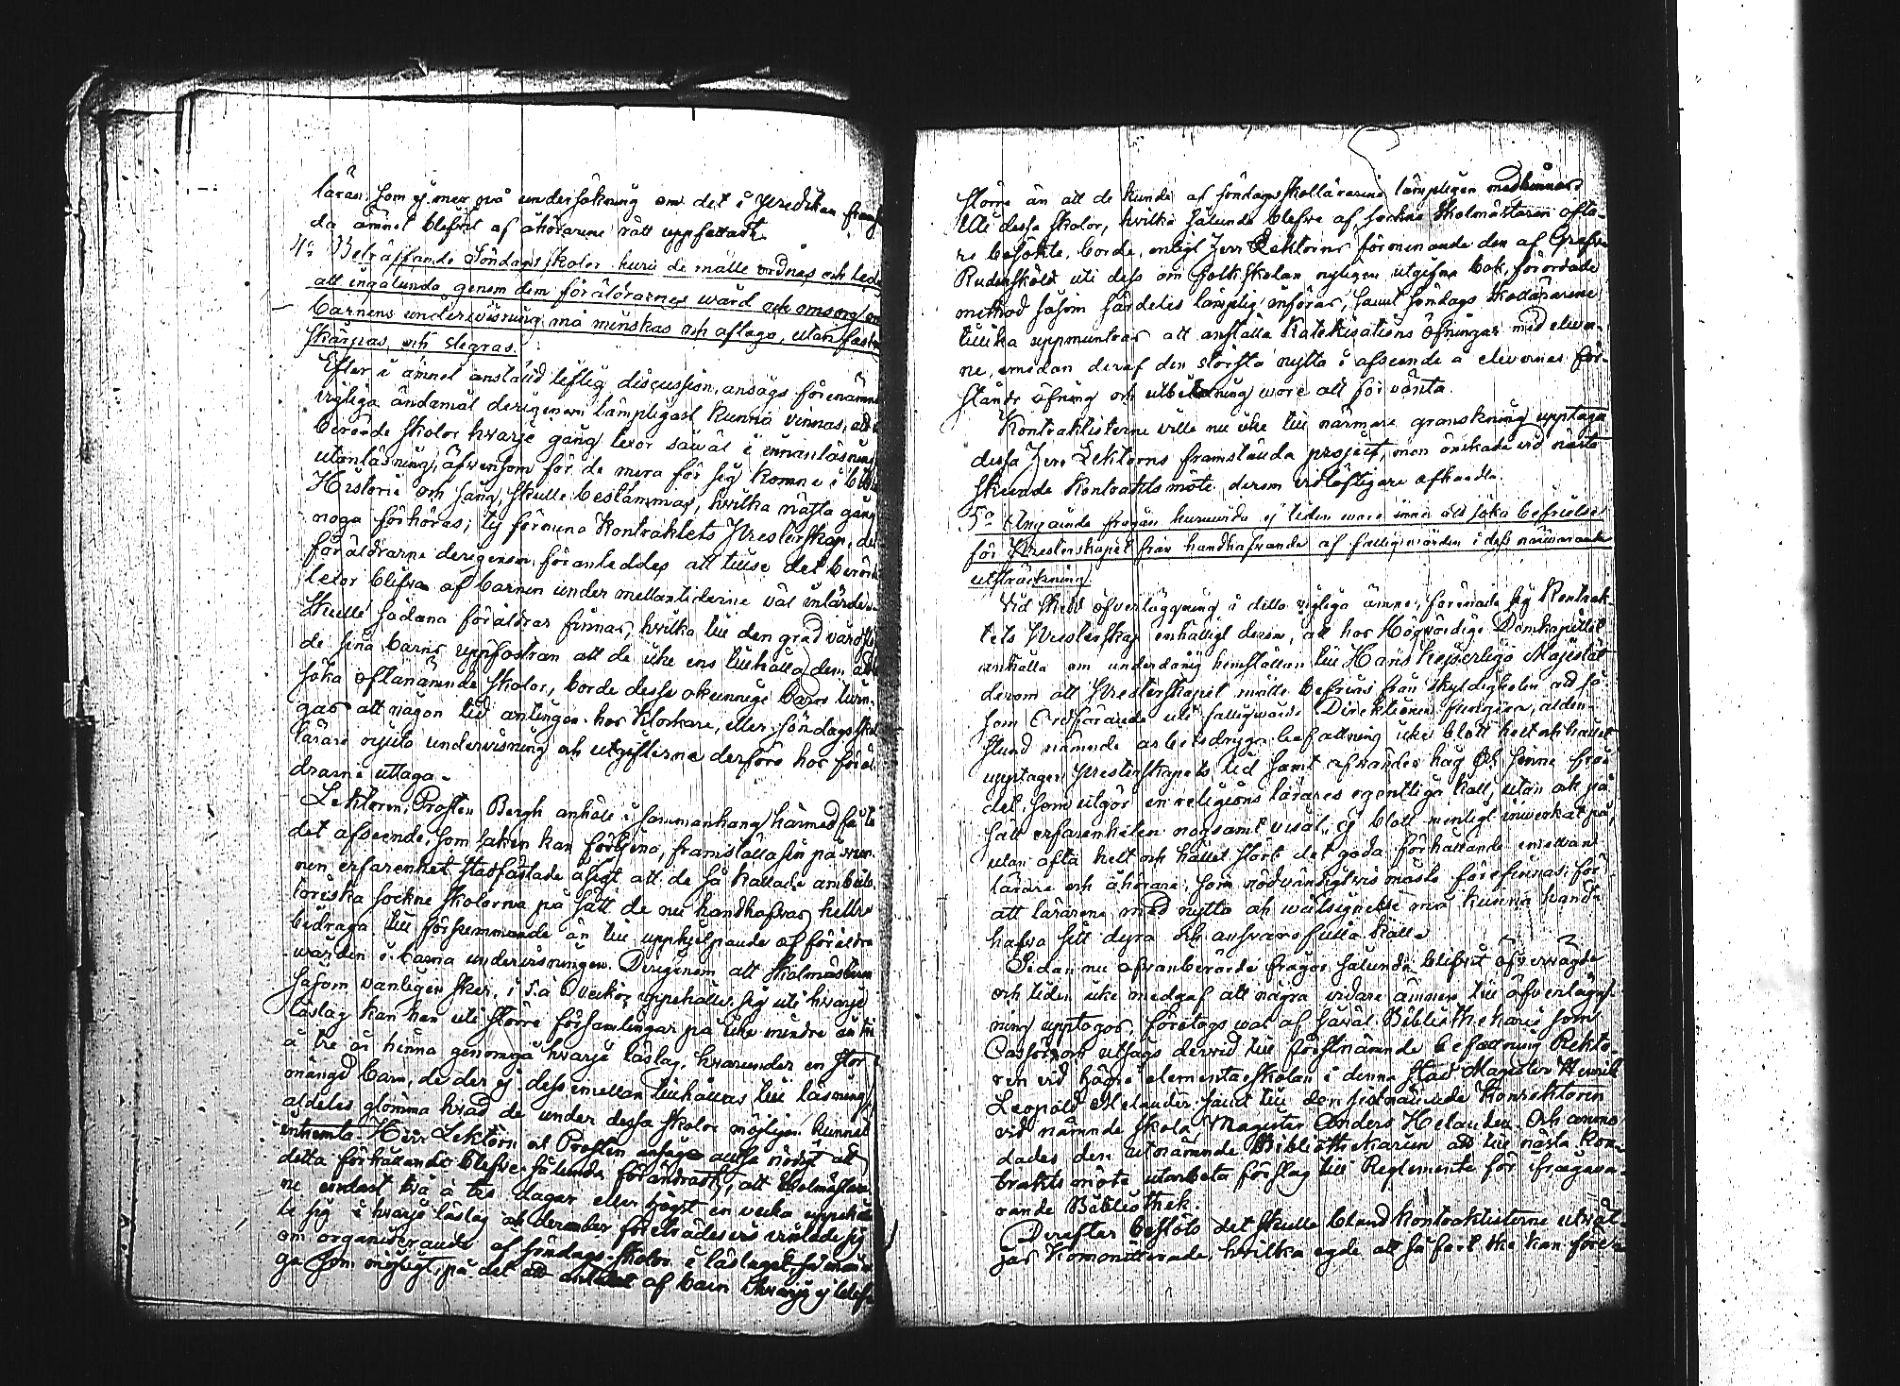 läran som ej mer på undersökning om det i Predikan fram
da ämnet blefvit af åhörarene rätt uppfattadt.
4:o Beträffande Söndagsskolor huru de måtte ordnas och leda
att ingalunda genom dem föräldrarnes wård och omsorg om
barnens undervisning må minskas och aftaga, utan fast
skärpas och stegras.
Efter i ämnet anstäld liflig discussion, ansågs förenämn
vigtiga ändamål derigenom lämpligast kunna vinnas, att i
berörde skolor hvarje gång lexor såwäl i innanläsning
utanläsning, äfvensom för de mera för sig komne i Bibl
Historie och sång, skulle bestämmas, hvilka nästa gång
noga förhöras; ty förmena Kontraktets Presterskap, de
föräldrarne derigenom föranleddes att tillse det berörde
lexor blifva af barnen under mellantiderne väl inlärde.
Skulle sådana föräldrar finnas, hvilka till den grad vårdslö
de sina barns uppfostran att de icke ens tillhålla dem att
söka oftanämnde skolor, borde desse okunnige barn
gas att någon tid antingen hos Klockare, eller Söndagsskol
lärare njuta undervisning och utgifterne derföre hos föräl
drarne uttaga.
Lektoren, Prosten Bergh anhöll i sammanhang härmed få till
det afseende, som saken kan förtjena, framställa sin på vun
nen erfarenhet stadfästade åsigt att de så kallade ambula
toriska sockne skolorna på sätt de nu handhafvas hellre
bidraga till försummande än till upphjelpande af föräldra
wården i barna undervisningen. Derigenom att Skolmästaren
såsom vanligen sker, i 5 à 6 veckor uppehåller sig uti hvarje
läslag kan han uti större församlingar på icke mindre än två
à tre år hinna genomgå hvarje läslag, hvarunder en stor
mängd barn, de der ej dessemellan tillhållas till läsning
aldeles glömma hvad de under dessa skolor möjligen kunnat
inhemta. Herr Lektorn och Prosten ansåge altså nödigt att
detta förhållande blefve sålunda förändradt, att Skolmästare
ne endast två à tre dagar eller högst en vecka uppehölle
sig i hvarje läslag och derunder företrädesvis vinlade sig
om organiserande af söndags skolor i läslaget, så mån
ga som möjligt, på det att antalet af barn i hvarje ej blef
större än att de kunde af söndagsskollärarene lämpligen medhinnas
Uti dessa skolor, hvilka sålunda blefve af sockne Skolmästaren ofta-
re besökte, borde, enligt Herr Lektorns förmenande den af Grefve
Rudenskÿld uti dess om folkskolan nyligen utgifna bok, förordade
method såsom särdeles lämplig införas, samt söndags skollärarene
tillika uppmuntras att anställa Katekisations öfningar med elever-
ne, emedan deraf den största nytta i afseende å elevernes för-
stånds öfning och utbildning wore att förvänta.
Kontraktisterne ville nu icke till närmare granskning upptaga
dessa Herr Lektorns framstälda project, men önskade vid nästa
skeende kontraktsmöte derom vidlöftigare afhandla.
5:o Angående frågan huruvida ej tiden wore inne att söka befrielse
för Presterskapet från handhafvande af fattigvården i dess närvarande
utsträckning.
Vid skedd öfverläggning i detta vigtiga ämne, förenade sig Kontrak-
tets Presterskap enhälligt derom, att hos Högvördige Domkapitlet
anhålla om underdånig hemställan till Hans Kejserliga Majestät
derom att Presterskapet måtte befrias från skyldigheten att så
som Ordförande uti fattigwårds Direktionen fungera, alden-
stund nämnde arbetsdryga befattning icke blott helt och hållet
upptager Presterskapets tid samt afvänder håg och sinne från
det, som utgör en religions lärares egentliga kall, utan ock på
sätt erfarenheten nogsamt visat, ej blott menligt inwerkat på,
utan ofta helt och hållet stört det goda förhållande emellan
lärare och åhörare, som nödvändigtvis måste förefinnas för
att lärarene med nytta och wälsignelse må kunna hand-
hafva sitt dyra och ansvarsfulla kall.
Sedan nu ofvanberörde frågor sålunda blefvit öfvervägde
och tiden icke medgaf att några vidare ämnen till öfverlägg-
ning upptogos, företogs wal af såväl Bibliothekarie som
Cassör och utsågs dervid till förstnämnde befattning Rekto-
ren vid högre elementarskolan i denna stad Magister Henrik
Leopold Melander samt till den sistnämnde Konrektoren
vid nämnde skola Magister Anders Helander. Och anmo-
dades den utnämnde Bibliothekarien att till nästa kon-
trakts möte utarbeta förslag till Reglemente för ifrågava-
rande Bibliothek.
Derefter beslöts det skulle bland kontraktisterne utväl-
jas Komonitterade, hvilka egde att så fort ske kan före-